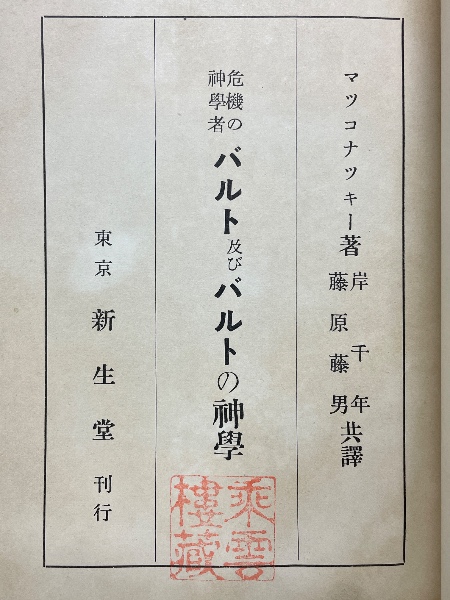 マツコナツキー著 岸千年 藤原藤男 共譯
危機の神學者 バルト及びバルトの神學
東京 新生堂 刊行
乘雲樓藏